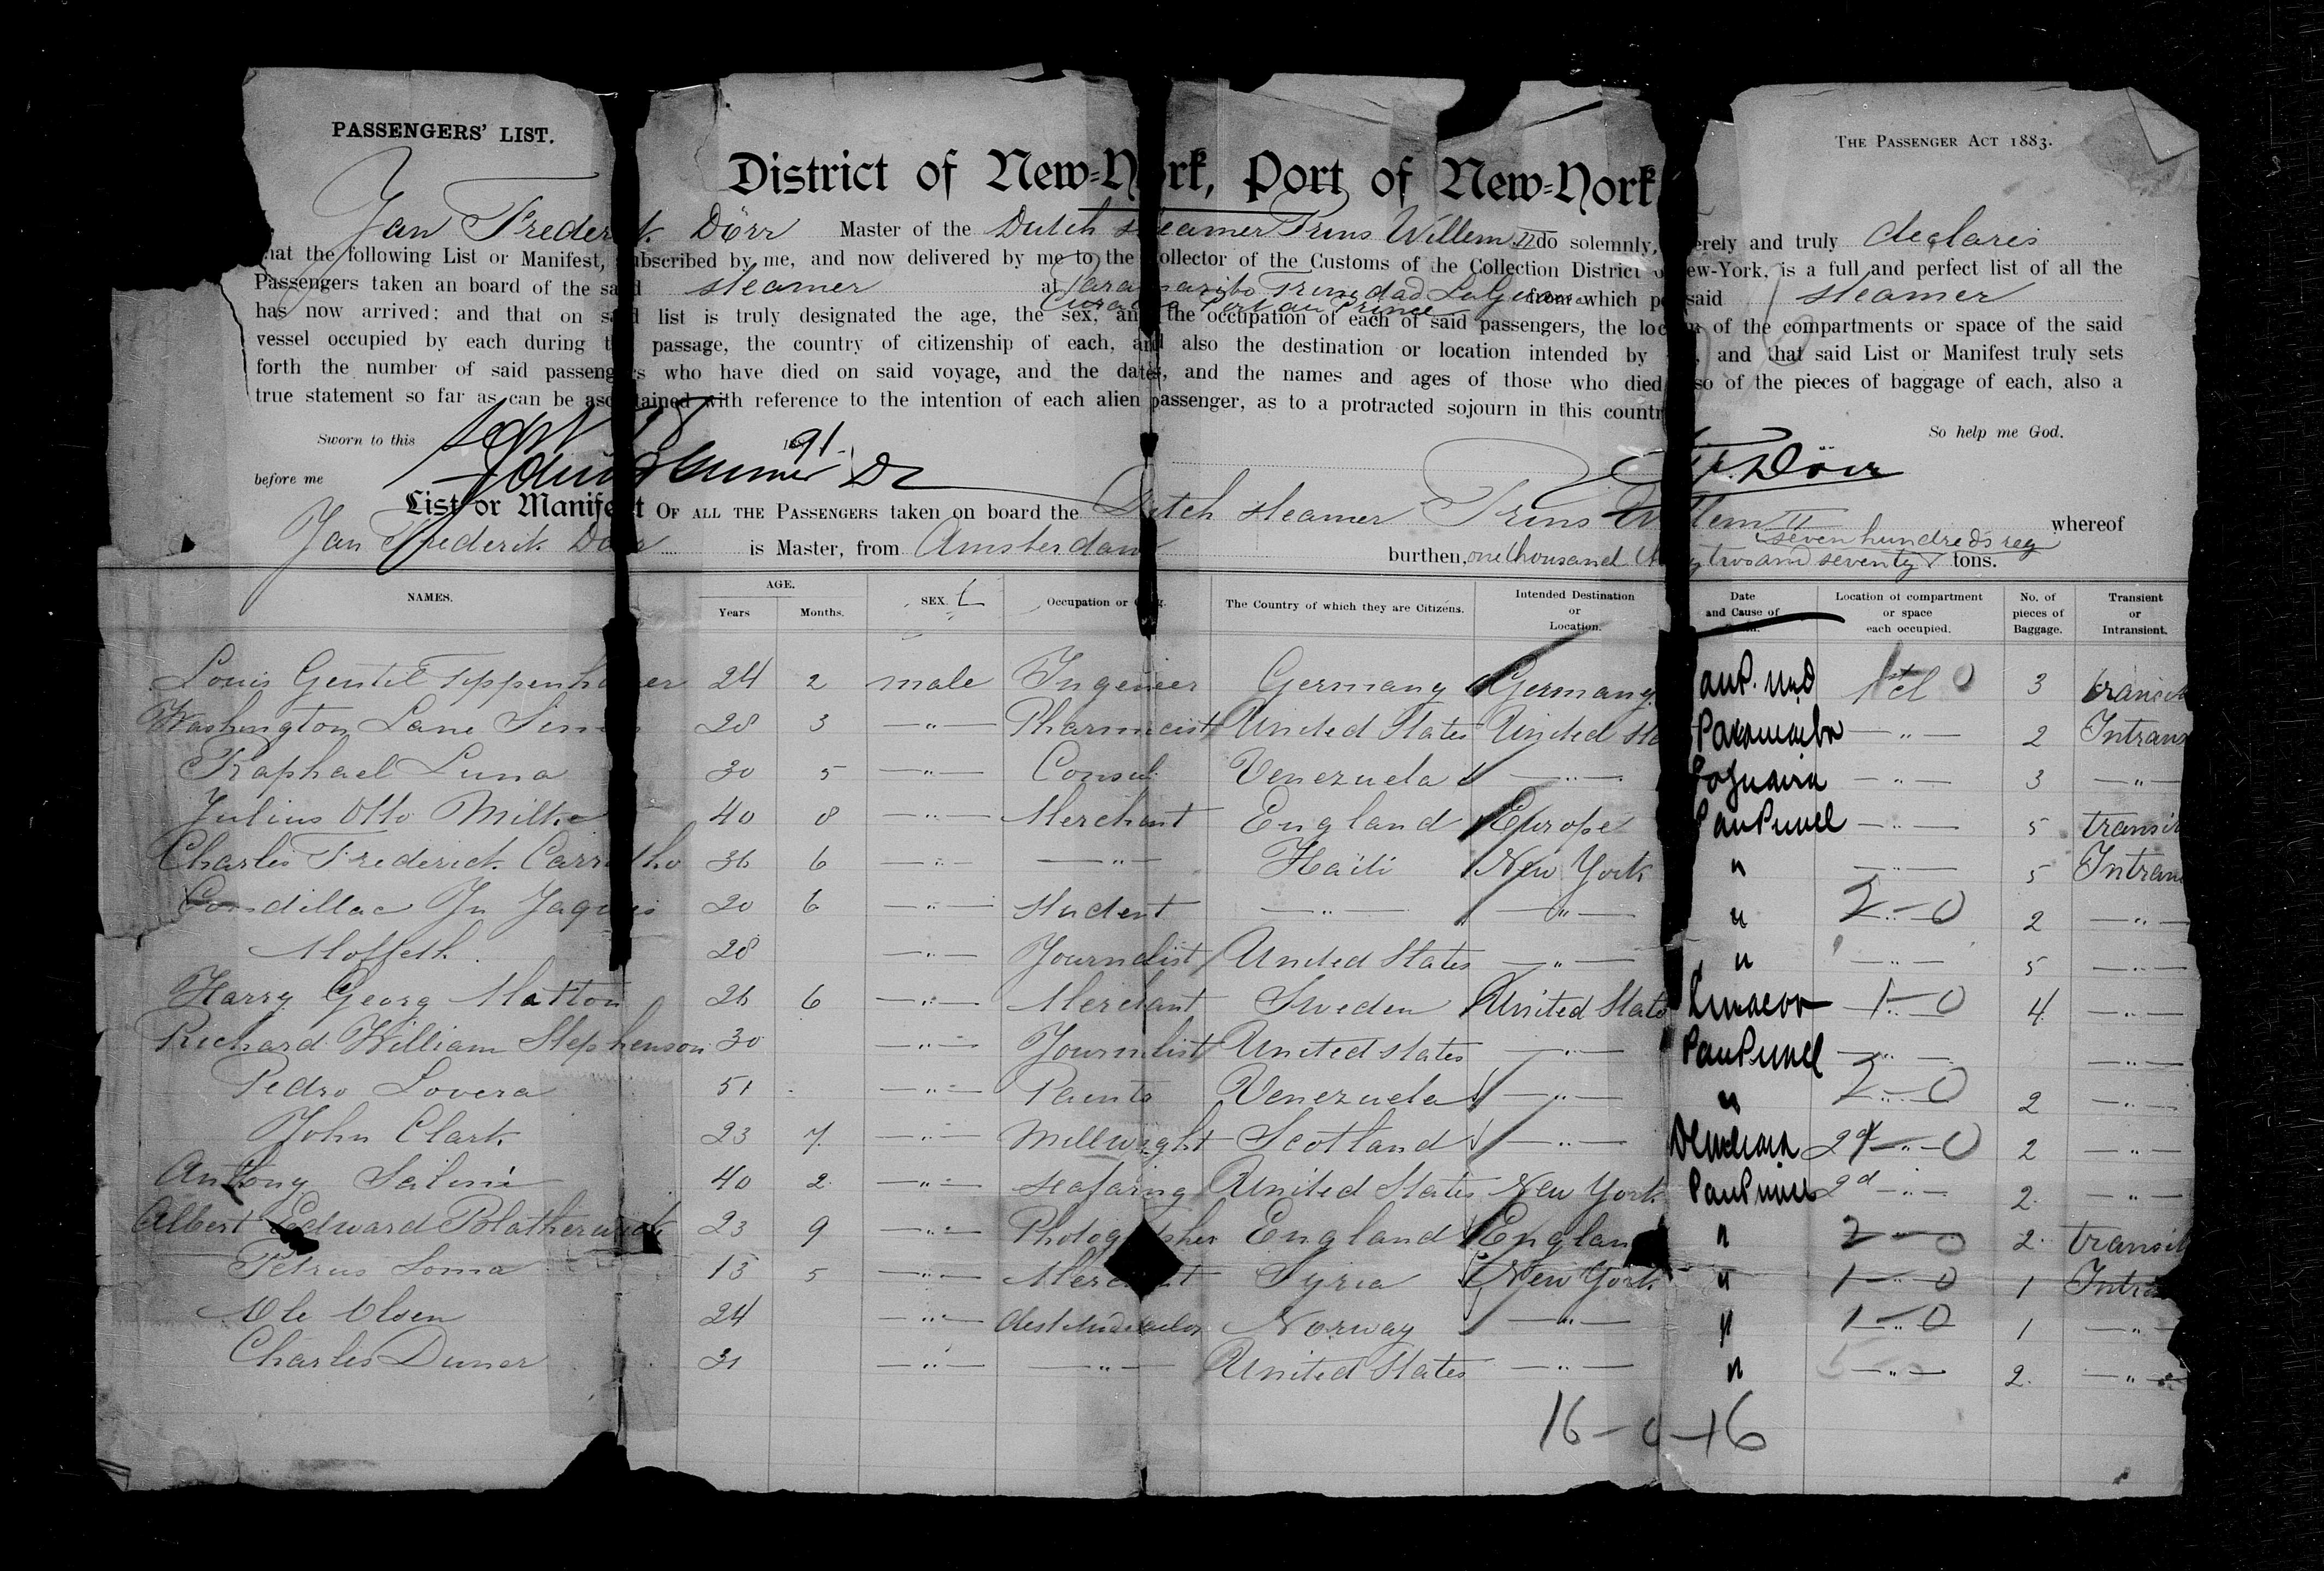 PASSENGERS' LIST.
THE PASSENGER ACT 1883.
District of New-York, Port of New-York
Jan Frederik Dörr Master of the Dutch steamer Prins Willem II do solemnly, sincerely and truly declares
that the following List or Manifest, subscribed by me, and now delivered by me to the Collector of the Customs of the Collection District of New-York, is a full and perfect list of all the
Passengers taken an board of the said steamer at Paramaribo Trinidad LaGuara from which port said steamer
Curacao Port au Prince
has now arrived: and that on said list is truly designated the age, the sex, and the occupation of each of said passengers, the location of the compartments or space of the said
vessel occupied by each during the passage, the country of citizenship of each, and also the destination or location intended by and that said List or Manifest truly sets
forth the number of said passengers who have died on said voyage, and the dates, and the names and ages of those who died also of the pieces of baggage of each, also a
true statement so far as can be ascertained with reference to the intention of each alien passenger, as to a protracted sojourn in this country
Sworn to this 18 1891.
So help me God.
before me
Dörr
List or Manifest OF ALL THE PASSENGERS taken on board the Dutch steamer Prins Willem II whereof
Jan Frederik Dörr is Master, from Amsterdam burthen, one thousand seven hundreds reg and seventy tons.
NAMES. AGE. Years Months. SEX. Occupation or Calling. The Country of which they are Citizens. Intended Destination or Location. Date and Cause of Death. Location of compartment or space each occupied. No. of pieces of Baggage. Transient or Intransient.
Louis Gentil Tippenhauer 24 2 male Ingenieer Germany Germany 1st cl 0 3 transit
Washington Lane 28 3 —"— Pharmacist United States United Sta Paramaribo —"— 2 Intrans
Raphael Luna 30 5 —"— Consul Venezuela —"— Laguaira —"— 3 —"—
Julius Otto Milke 40 8 —"— Merchant England Europe —"— 5 transit
Charles Frederick 36 6 —"— —"— Haïti New York " —"— 5 Intran
Condillac Jn Jaques 20 6 —"— Student —"— —"— " 2-0 2 —"—
Moffeth. 28 —"— Journalist United States —"— " —"— 5 —"—
Harry Georg Matton 26 6 —"— Merchant Sweden United States Curacao 1-0 4 —"—
Richard William Stephenson 30 —"— Journalist United States —"— —"— —"—
Pedro Lovera 51 —"— Venezuela —"— " 2-0 2 —"—
John Clark 23 7 —"— Millwright Scotland —"— Demerara 2d 0 2 —"—
Antony 40 2 —"— Seafaring United States New York 2d —"— 2. —"—
Albert Edward Blatherwick 23 9 —"— Photographer England England " 2-0 2. transit
Petrus Soma 13 5 —"— Merchant Syria New York " 1-0 1 Intra
Ole Olsen 24 —"— Norway —"— " 1-0 1 —"—
Charles Duner 31 —"— —"— United States —"— " —"— 2. —"—
16-0-16